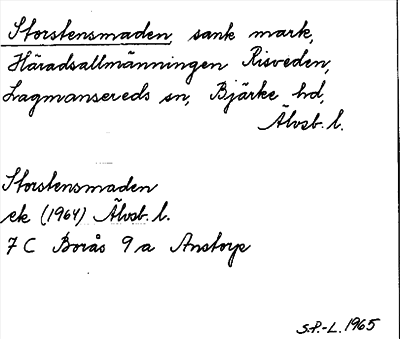 Storstensmaden, sank mark,
Häradsallmänningen Risveden,
Lagmansereds sn, Bjärke hd,
Älvsb. l.
Storstensmaden
ek (1964) Älvsb. l.
7 C Borås 9 a Anstorp
S.P.-L. 1965